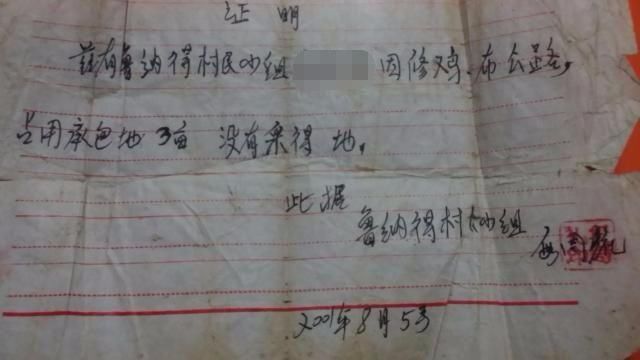 证明
兹有鲁纳得村民小组 因修 布公路，
占用承包地3亩 没有来得地。
此据
鲁纳得村小组
2001年8月5号